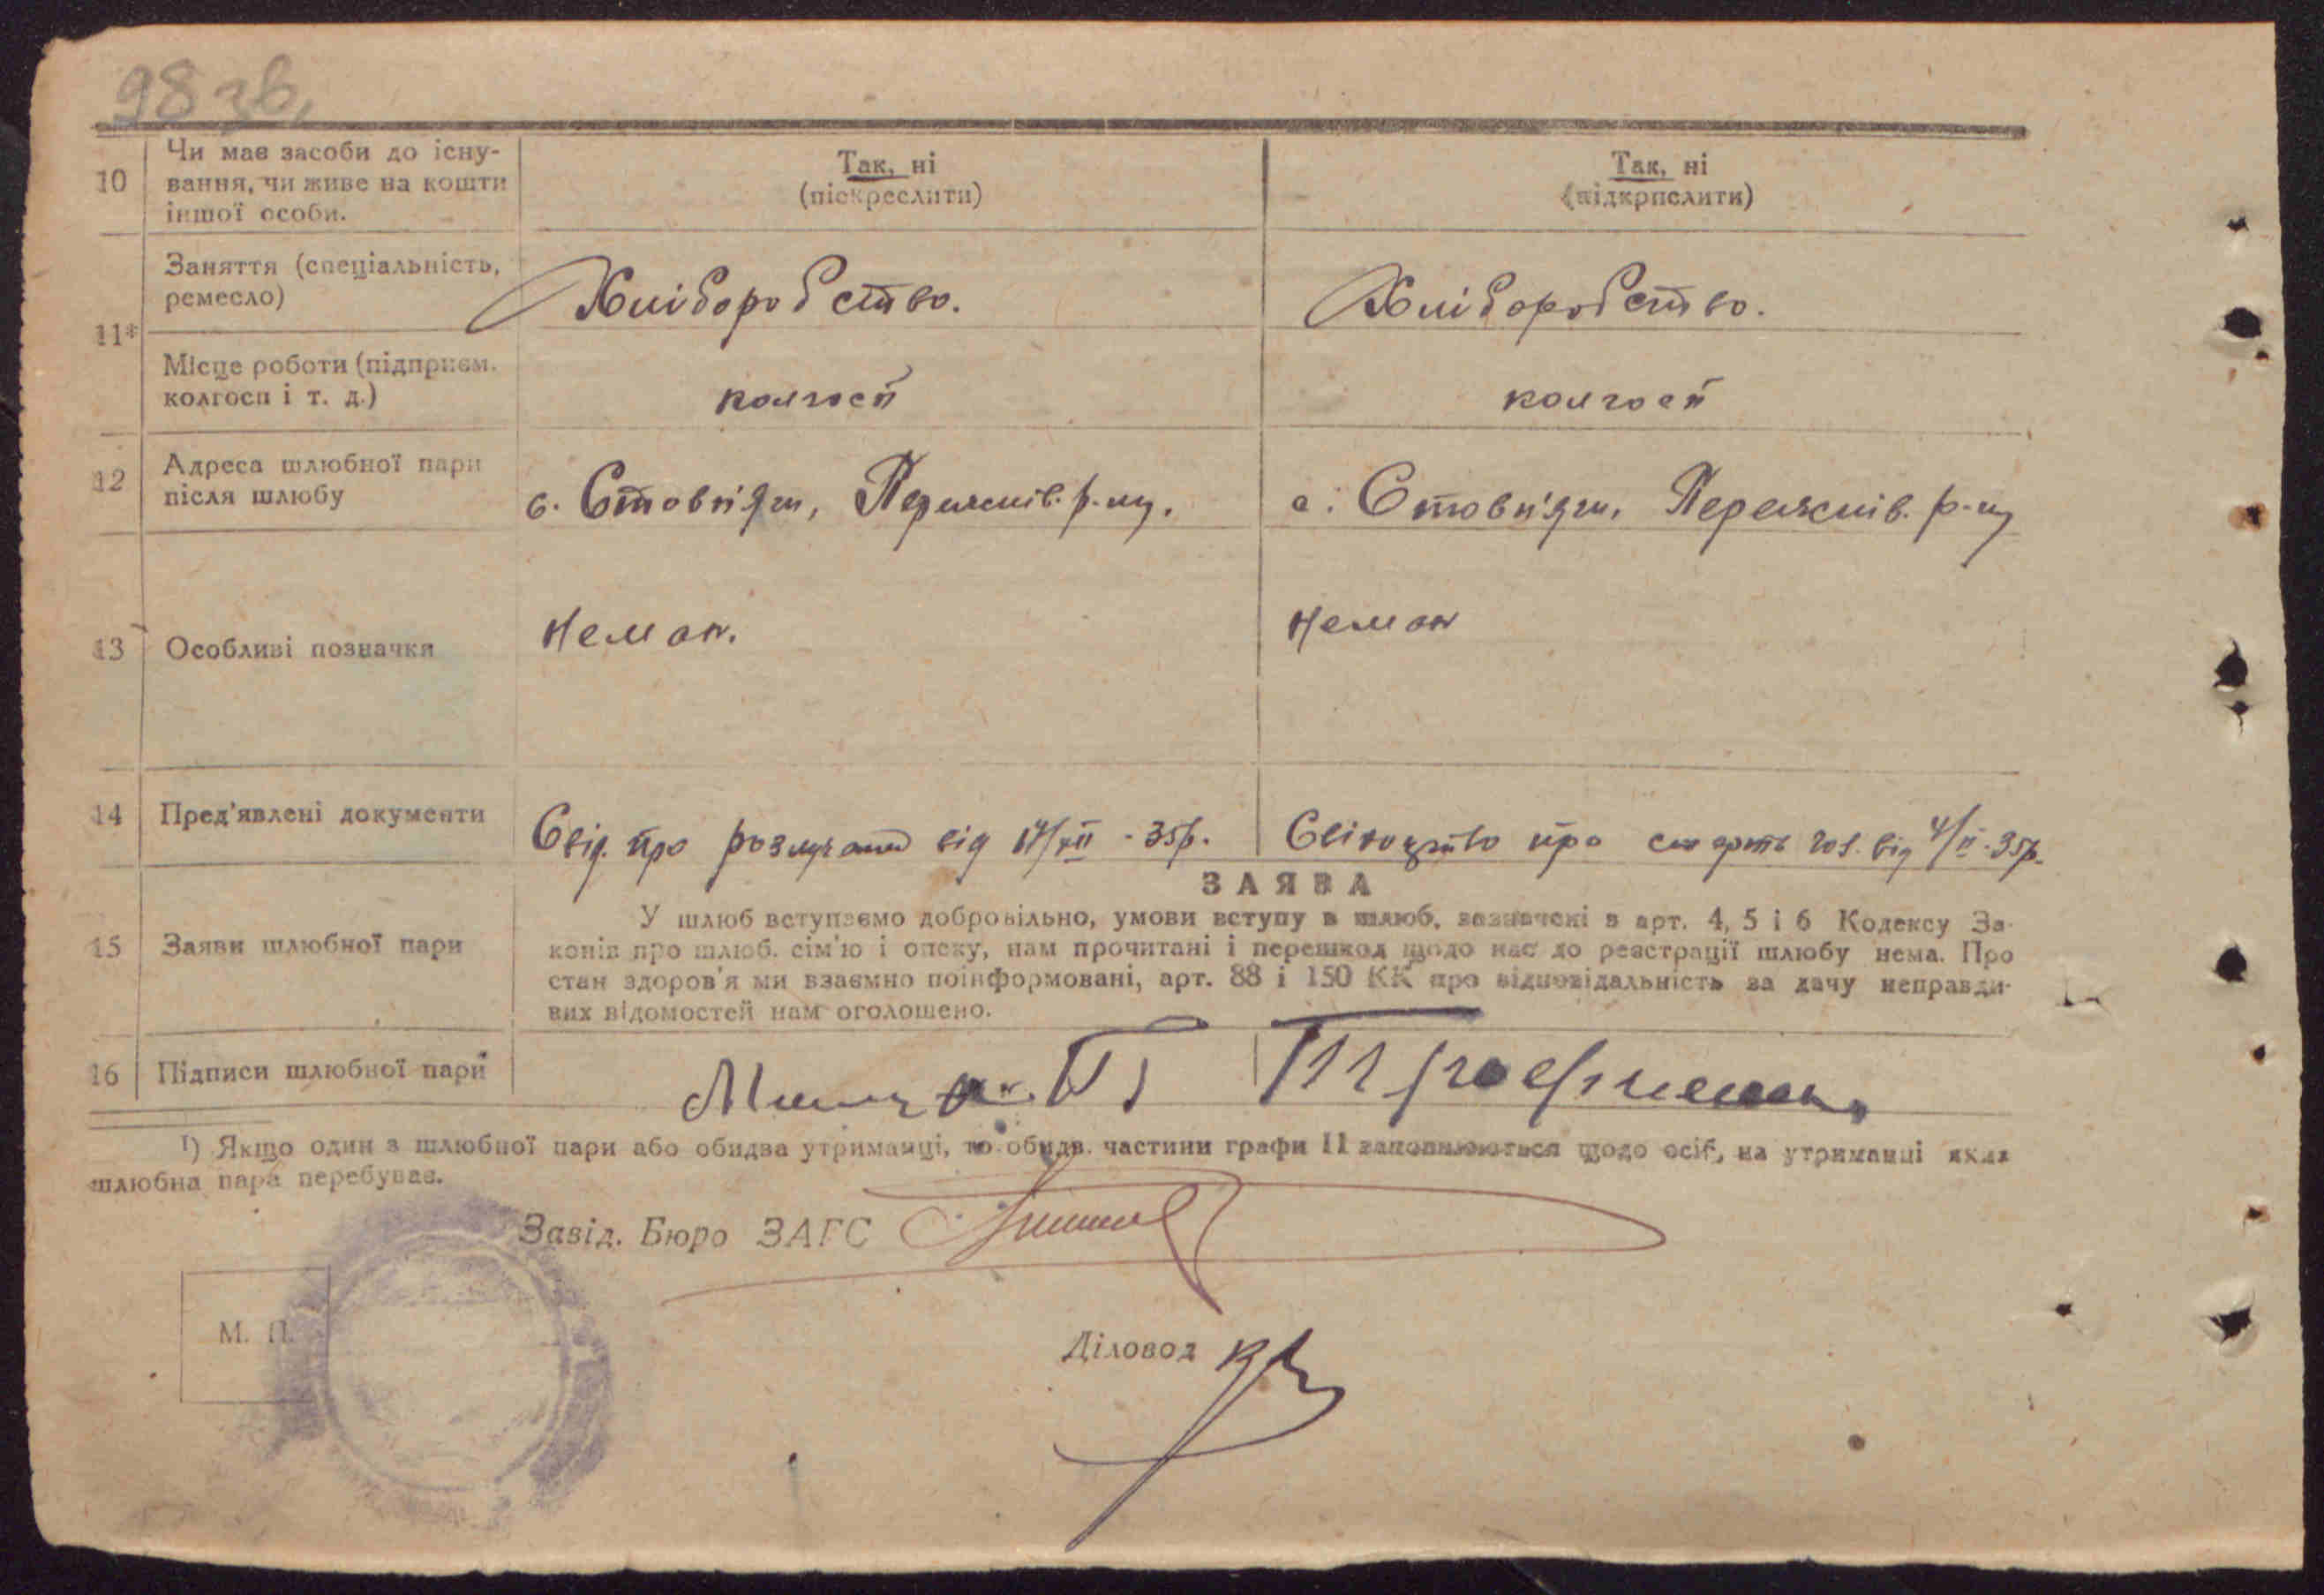 98 зв.
10 Чи має засоби до існу-
вання, чи живе на кошти
іншої особи.
Так, ні
(піскреслити)
Так, ні
(підкрпслити)
11*
Заняття (спеціальність,
ремесло)
Хліборобство.
Хліборобство.
Місце роботи (підприєм.
колгосп і т. д.)
колгосп
колгосп
12 Адреса шлюбної пари
після шлюбу
с. Стовп'яги, Переяслів. р-ну.
с. Стовп'яги, Переяслів. р-ну
13 Особливі позначки
Немає.
Немає
14 Пред'явлені документи
Свід. про розлучення від 17/XII - 35р.
Свідоцтво про смерть чол. від 4/II - 35р.
ЗАЯВА
15 Заяви шлюбної пари
У шлюб вступаємо добровільно, умови вступу в шлюб, зазначені в арт. 4, 5 і 6 Кодексу За-
конів про шлюб. сім'ю і опеку, нам прочитані і перешкод щодо нас до реєстрації шлюбу нема. Про
стан здоров'я ми взаємно поінформовані, арт. 88 і 150 КК про відповідальність за дачу неправди-
вих відомостей нам оголошено.
16 Підписи шлюбної пари
1) Якщо один з шлюбної пари або обидва утриманці, то обидв. частини графи 11 заповнюються щодо осіб, на утриманні яких
шлюбна пара перебуває.
Завід. Бюро ЗАГС
М. П.
Діловод